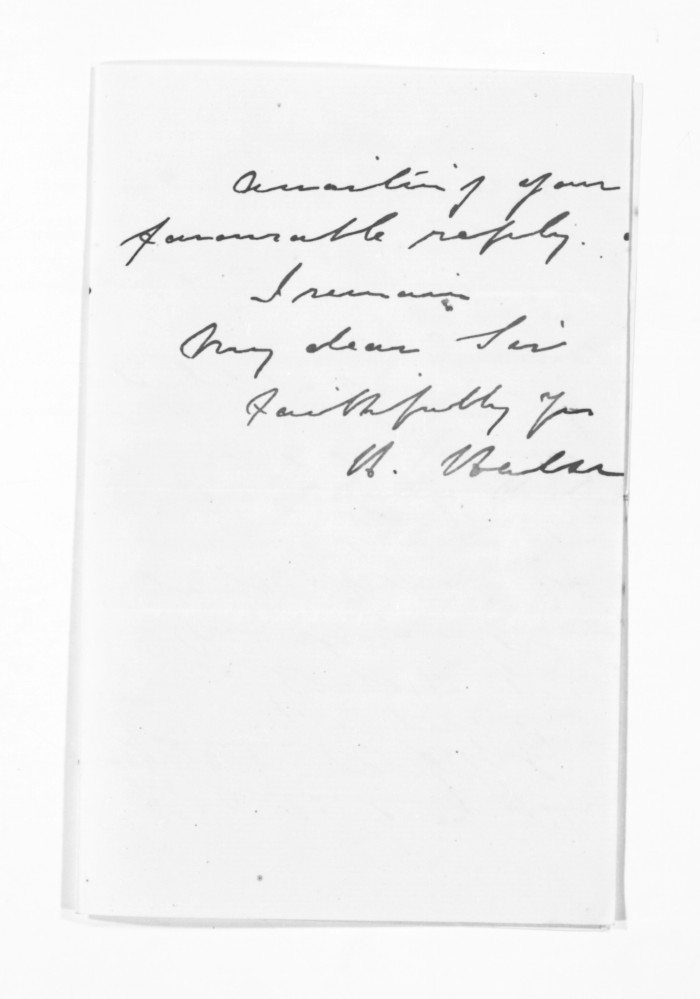 Awaiting your
favourable reply.
I remain
My dear Sir
Faithfully Yrs